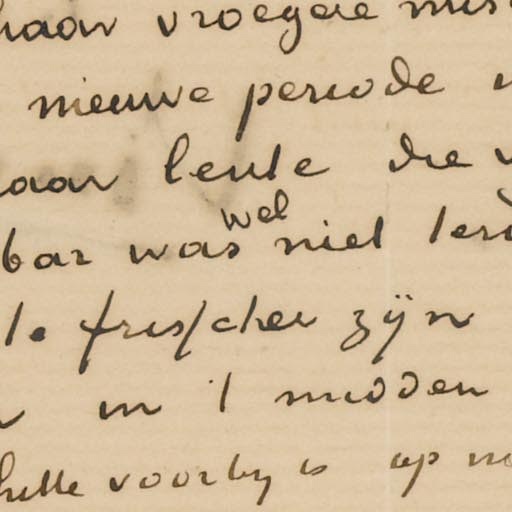 haar vroegere
nieuwe periode
haar lente die
wel
bar was niet
frisscher zijn
in 't midden
voorby is op